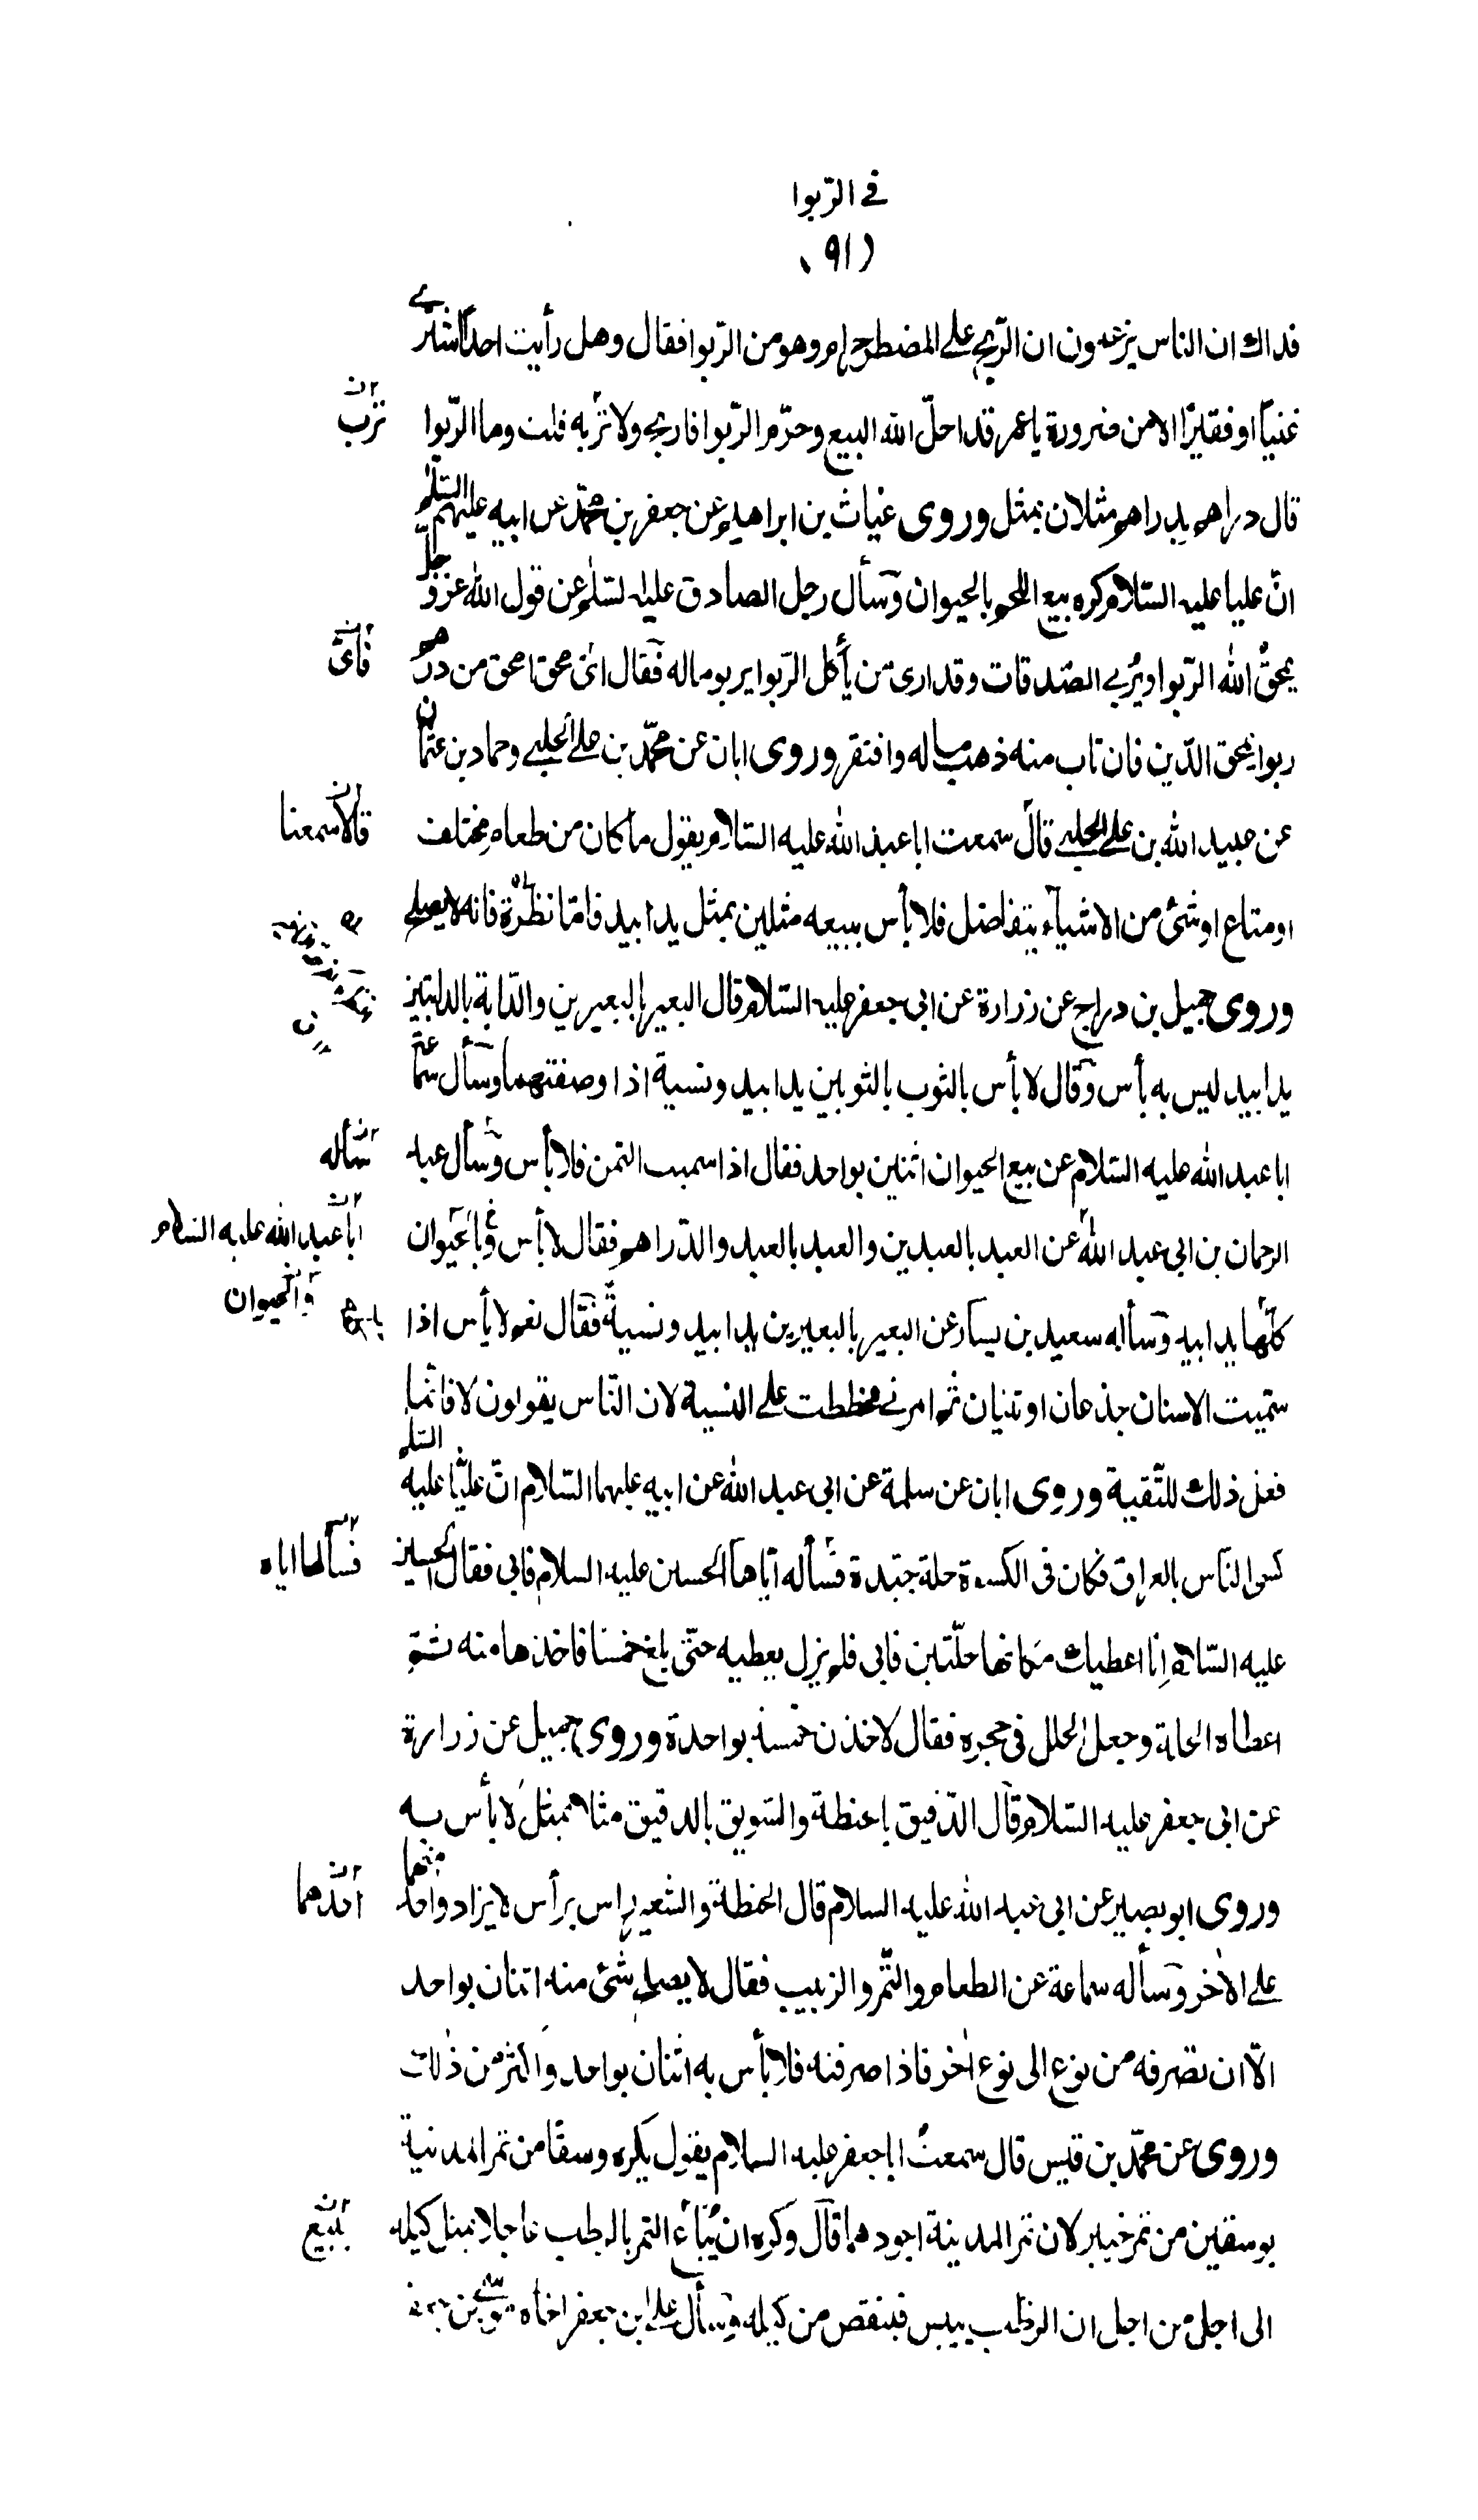 في الربوا
(٩١)
فداك ان الناس يزعمون ان الربح على المضطر حرام وهو من الربوا فقال وهل رأيت احدا اشترى
غنيّا او فقيرًا الا من ضرورة يا عمر قد احلّ الله البيع وحرّم الربوا فاربح ولا تربه قلت وما الرّبوا
ترب
قال دراهم بدراهم مثلان بمثل وروى غياث بن ابراهيم عن جعفر بن محمّد عن ابيه عليهم السّلم
انّ عليا عليه السّلام كره بيع اللحم بالحيوان وسأل رجل الصادق عليه لسّلم عن قول الله عزّ وجلّ
يمحق الله الرّبوا ويُربي الصّدقات وقد ارى من يأكل الرّبوا يربو ماله فقال ايّ محق امحق من درهم
فايّ
ربوا يمحق الدّين فان تاب منه ذهب ماله وافتقر وروى ابان عن محمّد بن على الحلبي وحماد بن عثمان
عن عبيد الله بن علي الحلبي قال سمعت ابا عبد الله عليه السّلام يقول ما كان من طعام مختلف
قالا سمعنا
او متاع او شئ من الاشياء يتفاضل فلا بأس ببيعه مثلين بمثل يدا بيد فامّا نظرة فانه لا يصلح
وروى جميل بن دراج عن زرارة عن ابى جعفر عليه السّلام قال البعير بالبعيرين والدّابة بالدابتين
يدا بيد ليس به بأس وقال لا بأس بالثوب بالثوبين يدا بيد ونسية اذا وصفتهما وسأل سماعة
ابا عبد الله عليه السّلام عن بيع الحيوان اثنين بواحد فقال اذا سميت الثمن فلا بأس وسأل عبد
سأله
الرحمان بن ابى عبد الله عن العبد بالعبدين والعبد بالعبد والدّراهم فقال لا بأس وبالحيوان
ابا عبد الله عليه السلام
والحيوان
كلّها يدا بيد وسأله سعيد بن يسار عن البعير بالبعيرين يدا بيد ونسية فقال نعم لا بأس اذا
سميت الاسنان جذعان او ثنيان ثم امرني فخططت على النسية لان النّاس يقولون لا فانّما
فعل ذلك للتّقية وروى ابان عن سلمة عن ابى عبد الله عن ابيه عليهما السّلام انّ عليّا عليه السّلم
كسى النّاس بالعراق فكان فى الكسوة حلة جيّدة فسأله ايّاها الحسين عليه السلام فابى فقال الحسين
فسألها اياه
عليه السّلام انا اعطيك مكانها حلّتين فابى فلم يزل يعطيه حتّى بلغ خمسا فاخذها منه ثمّ
اعطاه الحلة وجعل الحلل فى حجره فقال لاخذن خمسة بواحدة وروى جميل عن زرارة
عن ابى جعفر عليه السّلام قال الدّقيق بالحنطة والسّويق بالدقيق مثلا بمثل لا بأس به
وروى ابو بصير عن ابى عبد الله عليه السلام قال الحنطة والشعير رأس برأس لا يزاد واحد منهما
احدهما
على الاٰخر وسأله سماعة عن الطعام والتّمر والزبيب فقال لا يصلح شئ منه اثنان بواحد
الّا ان تصرفه من نوع الى نوع اٰخر فاذا صرفته فلا بأس به اثنان بواحد واكثر من ذلك
وروى عن محمّد بن قيس قال سمعت ابا جعفر عليه السلام يقول يكره وسقا من تمر المدينة
بوسقين من تمر خيبر لان تمر المدينة اجودهما قال وكره ان يُباع التمر بالرطب عاجلا بمثل كيله
يبيع
الى اجل من اجل ان الرطب ييبس فينقص من كيله وسأل على بن جعفر اخاه موسى بن جعفر